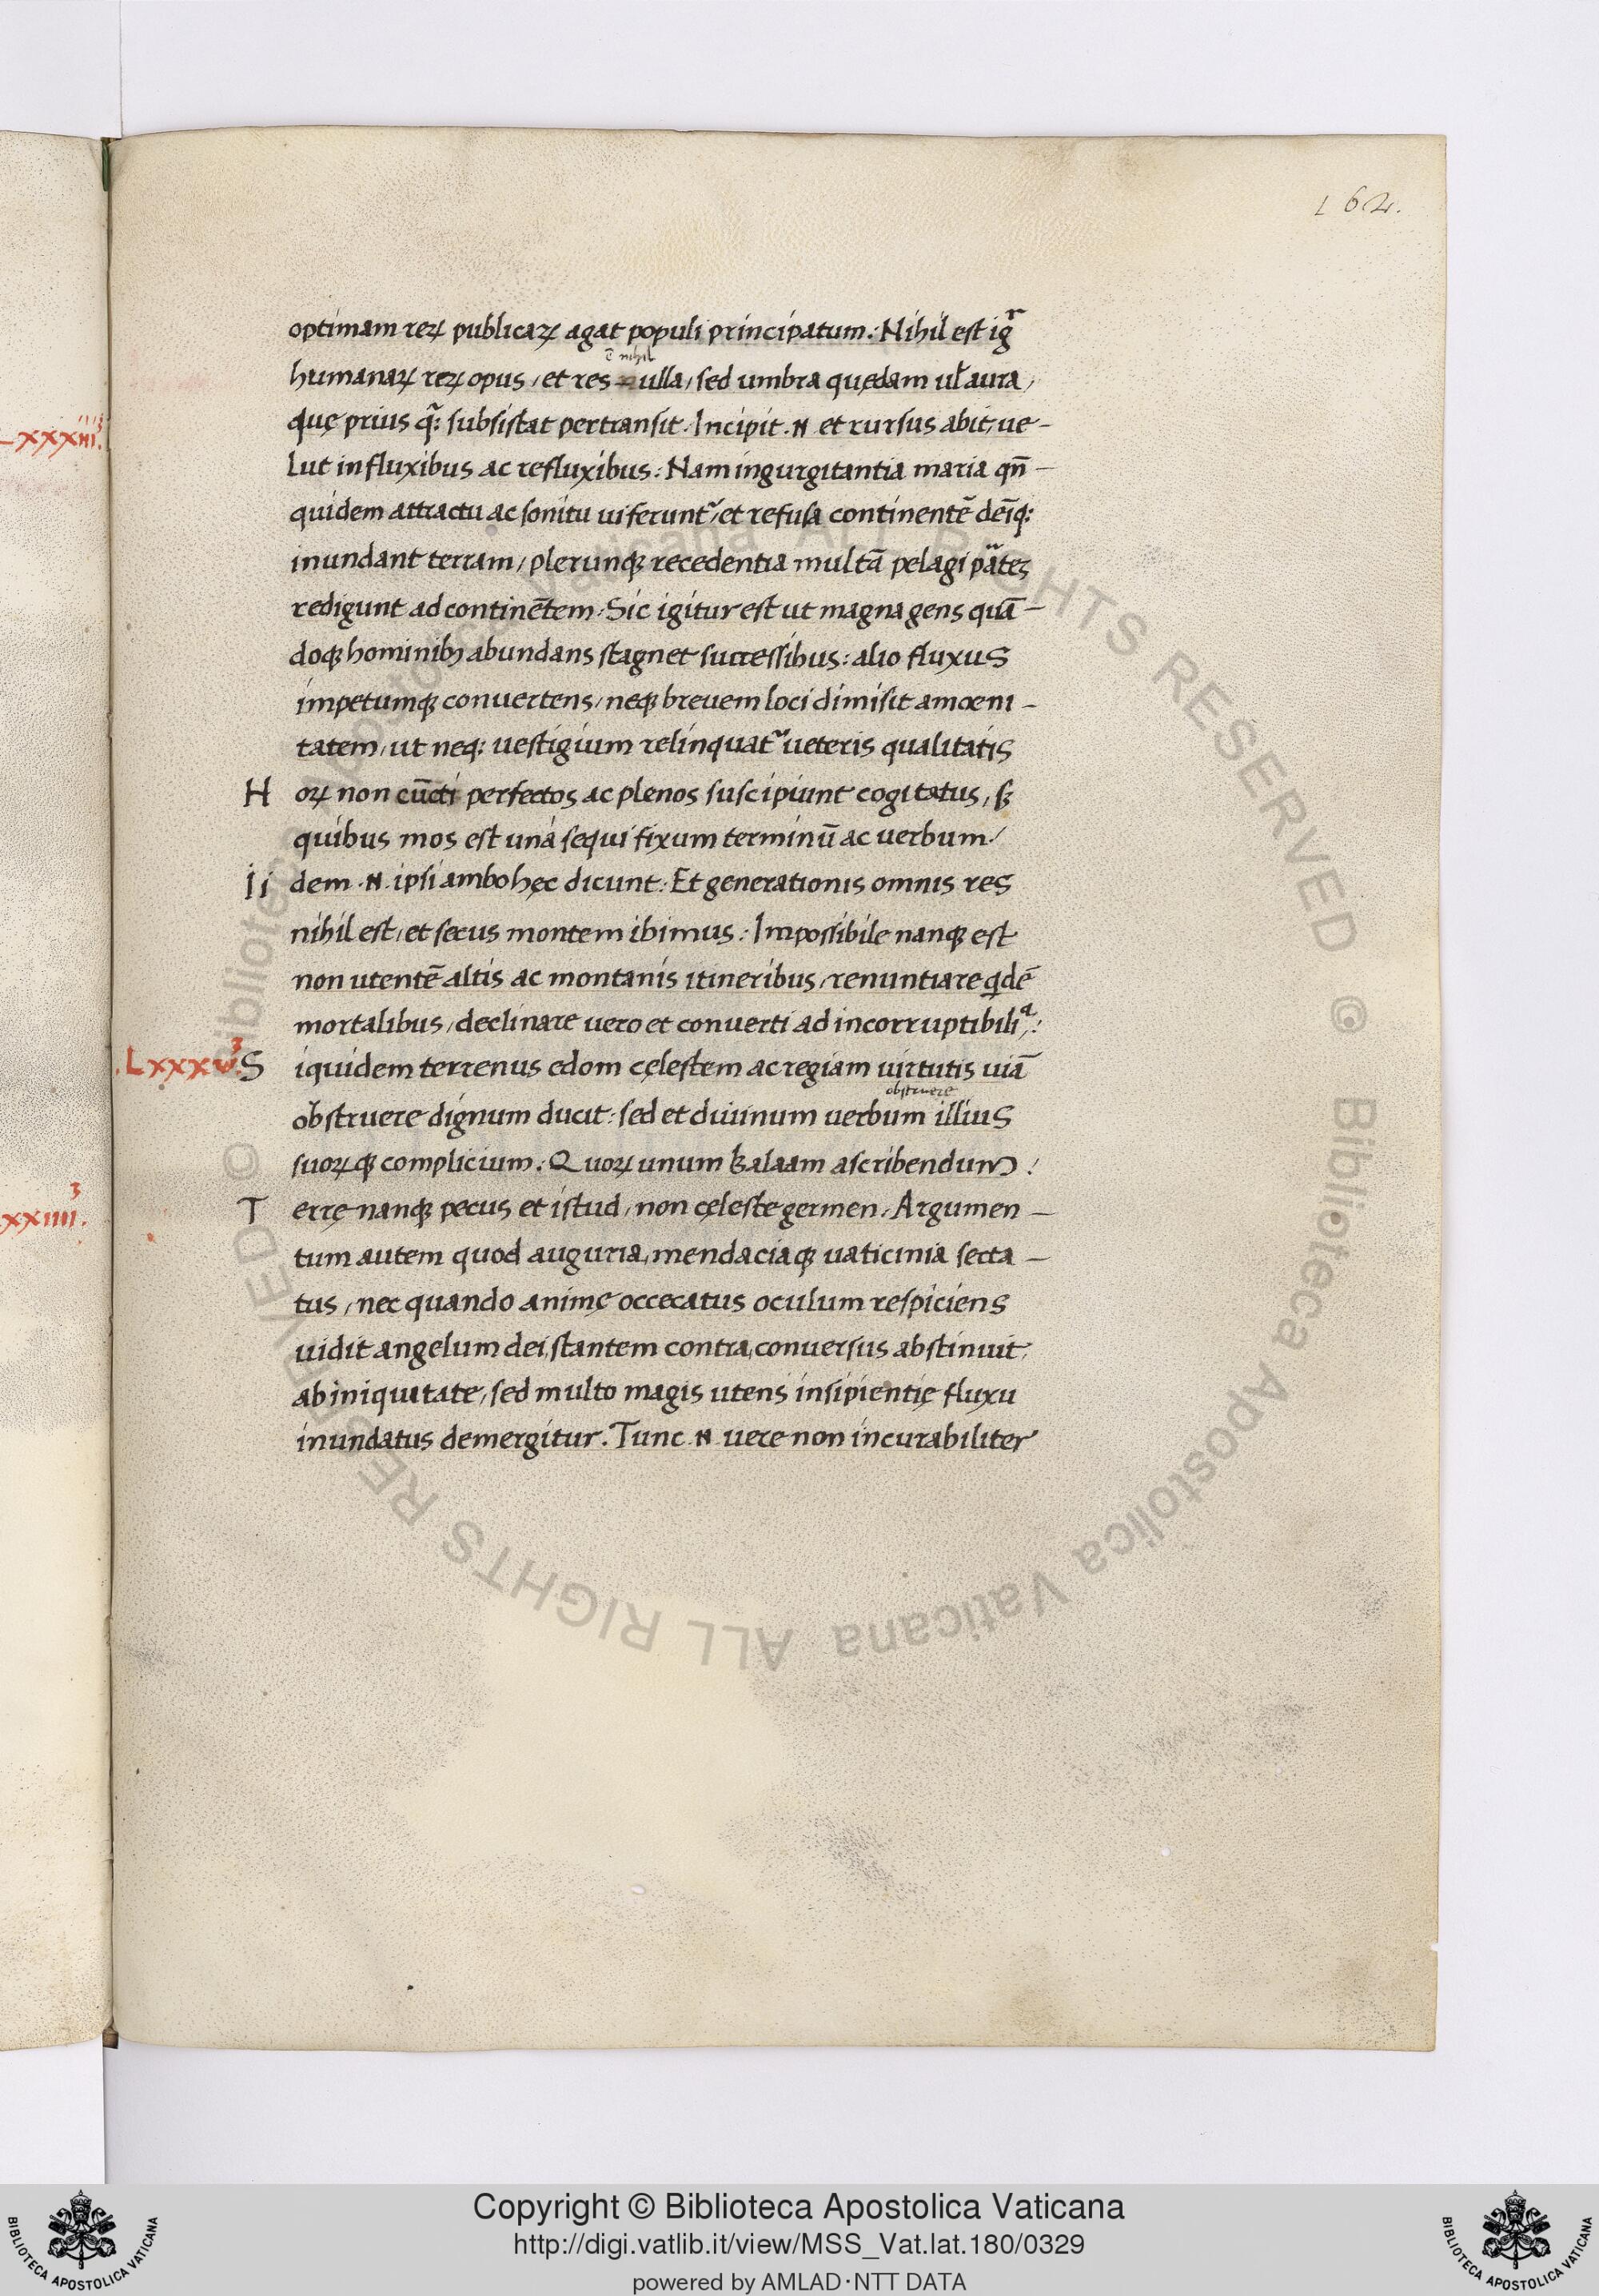 162.
optimam reꝝ publicaꝝ agat populi principatum: Nihil est igr̃
ē nihil
humanaꝝ reꝝ opus, et res ulla, sed umbra quędam ul̃ aura,
quę prius q̃: subsistat pertransit. Incipit .N. et rursus abit, ue-
lut in fluxibus ac refluxibus: Nam ingurgitantia maria qñ-
quidem attractu ac sonitu uiferunt᷑, et refusa continentē deīq:
inundant terram, plerunqꝫ recedentia multā pelagi
redigunt ad continētem. Sic igitur est ut magna gens quā-
doqꝫ hominibꝫ abundans stagnet successibus: alio fluxus
impetumqꝫ conuertens, neqꝫ breuem loci dimisit amœni-
tatem, ut neq: uestigium relinquat᷑ ueteris qualitatis
H oꝝ non cūcti perfectos ac plenos suscipiunt cogitatus, sꝫ
quibus mos est unà sequi fixum terminū ac uerbum/
Ii dem .N. ipsi ambo hęc dicunt: Et generationis omnis res
nihil est, et secus montem ibimus: Impossibile nanqꝫ est
non utentē altis ac montanis itineribus, renuntiare qͥdē
mortalibus, declinare uero et conuerti ad incorruptibiliᵃ:
.Lxxxv³. S iquidem terrenus edom cęlestem ac regiam uirtutis uiā
obstruere
obstruere dignum ducit: sed et diuinum uerbum illius
suoꝝqꝫ complicium: Quoꝝ unum Balaam ascribendum:
T errę nanqꝫ pecus et istud, non cęleste germen. Argumen-
tum autem quod auguria, mendaciaqꝫ uaticinia secta-
tus, nec quando animę occecatus oculum respiciens
uidit angelum dei, stantem contra, conuersus abstinuit
ab iniquitate, sed multo magis utens insipientię fluxu
inundatus demergitur. Tunc .N. uere non incurabiliter
Lxxxiii³.
xxiiii³.
© Biblioteca Apostolica Vaticana ALL RIGHTS RESERVED © Biblioteca Apostolica Vaticana ALL RIGHTS RESERVED
Copyright © Biblioteca Apostolica Vaticana
http://digi.vatlib.it/view/MSS_Vat.lat.180/0329
powered by AMLAD·NTT DATA
BIBLIOTECA APOSTOLICA VATICANA
BIBLIOTECA APOSTOLICA VATICANA